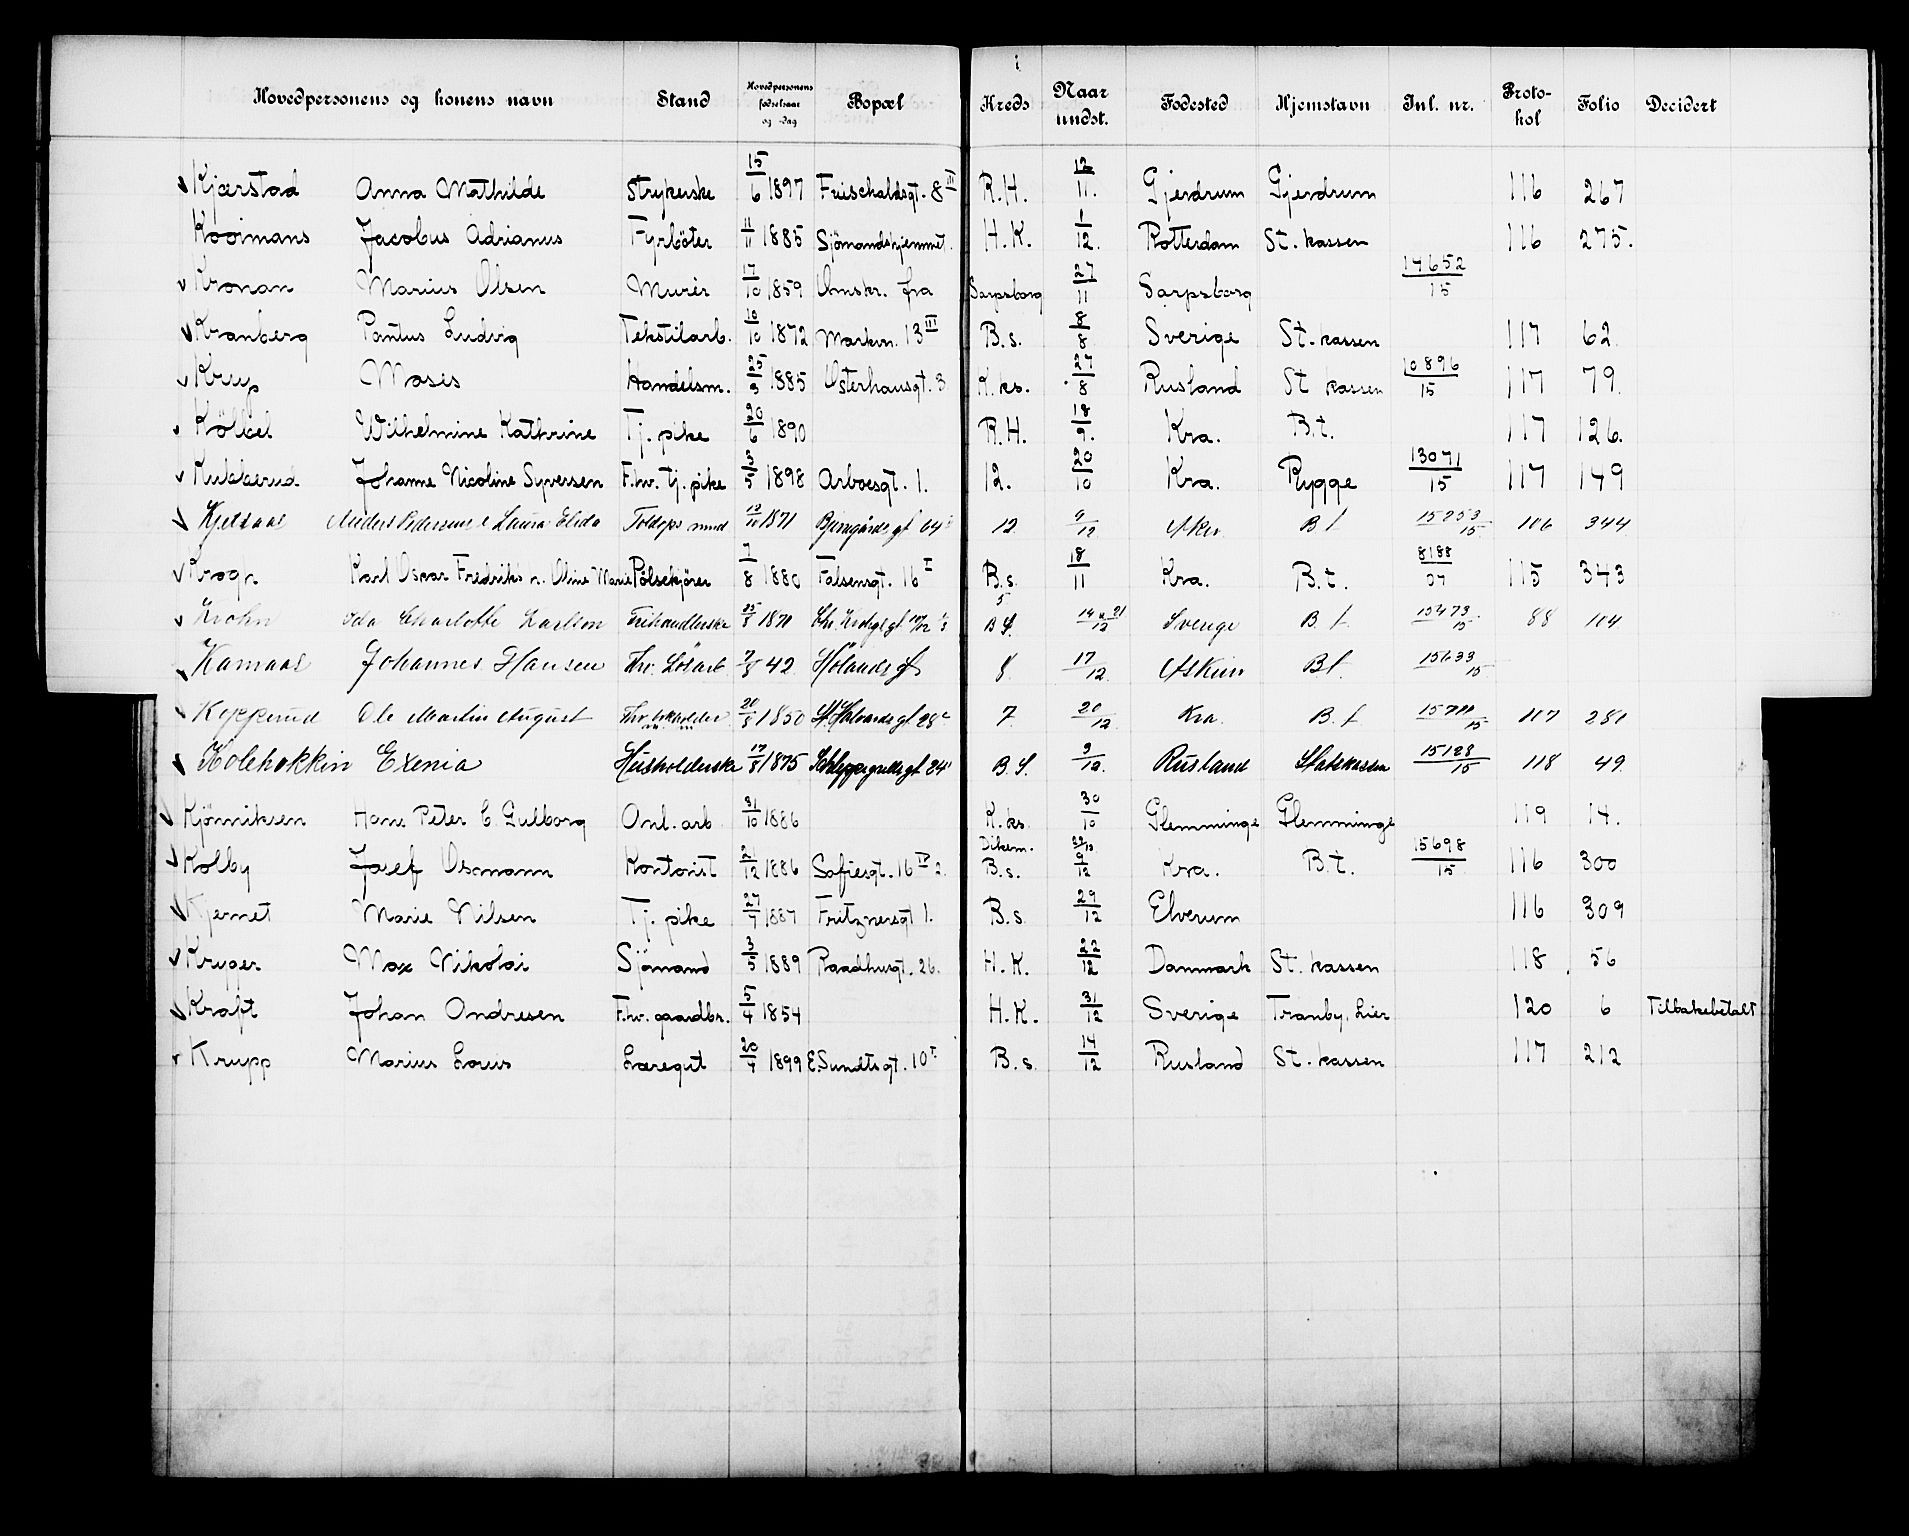 Hovedpersonens og konens navn Stand Hovedpersonens fødselsaar og -dag Bopæl Kreds Naar undst. Fødested Hjemstavn Inl. nr. Proto-kol Folio Decidert
Kjærstad Anna Mathilde Strykerske 15/6 1897 8 III R.H. 12/11. Gjerdrum Gjerdrum 116 267
Kooimans Jacobus Adrianus Fyrböter 11/11 1885 Sjömandshjemmet. H.K. 1/12. Rotterdam St. kassen 116 275.
Kronan Marius Olsen Murer 17/10 1859 Omskr. fra Sarpsborg 27/11 Sarpsborg 14652/15
Kranberg Pontus Ludvig Tekstilarb. 10/10 1872 Markvn. 13 III B.s. 8/8 Sverige St. kassen 117 62
Krup Moses Handelsm. 25/3 1885 Osterhausgt. 3 K.ks. 27/8 Rusland St kassen 10896/15 117 79.
Kölkel Wilhelmine Kathrine Tj. pike 20/6 1890 R.H. 18/9. Kra. B.t. 117 126.
Kukkerud Johanne Nicoline Syversen F.hv. tj. pike 3/5 1898 Arboesgt. 1. 12. 20/10 Kra. Rygge 13071/15 117 149
Kjelsaas Anders Pedersen e Laura Elida 1871 64 12 9/12 Aker B t 15253/15 116 344
Krogh Karl Oscar Fredriks n. Oline Marie Pölsekjörer 7/8 1880 Falsensgt. 16 I B.s. 18/11 Kra. B.t. 8188/07 115 343
Krohn Oda Charlotte Karlson Frihandlerske 25/8 1871 5 B S. 14 & 21/12 Sverige B t. 15473/15 88 104
Kamaas Johannes Hansen Fhv. Lösarb 7/8 42 Hölands gt 8 17/12 Askim B t. 15633/15
Kopperud Ole Martin August 20/8 1850 St. Halvards gt 28 c 7 20/12 Kra. B. t 15711/15 117 281
Kolehokkin Exenia Husholderske 17/8 1875 Schleppegrellsgt 24 B. S. 3/12. Rusland Statskassen 15128/15 118 49.
Kjönniksen Hans Peter C. Gulborg Anl. arb 31/10 1886 K.ks. 30/10 Glemminge Glemminge 119 14.
Kolby Josef Osmann Kontorist 2/12 1886 Sofiesgt. 16 IV 2. Dikem. B.s. 9/12 Kra. B.t. 15698/15 116 300
Kjernet Marie Nilsen Tj. pike 27/7 1887 Fritznersgt 1. B.s. 29/12 Elverum 116 309
Kryger Max Nikolai Sjömand 3/5 1889 Raadhusgt. 26. H.K. 22/12 Danmark St. kassen 118 56
Kraft Johan Andresen F.hv. gaardbr. 5/4 1854 H.K. 31/12 Sverige Tranby, Lier 120 6 Tilbakebetalt
Krupp Marius Louis Læregut 20/7 1899 E.Sundtsgt. 10 I B.s. 14/12 Rusland St. kassen 117 212